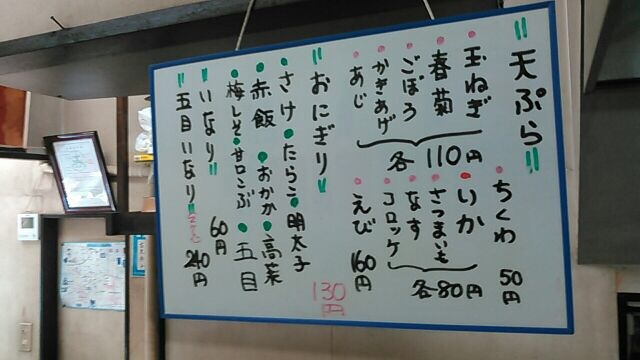 "天ぷら"
ちくわ 50円
玉ねぎ
春菊
ごぼう
かきあげ
あじ
各110円
いか
さつまいも
なす
コロッケ
各80円
えび 160円
"おにぎり"
さけ・たらこ・明太子
赤飯・おかか・高菜
梅しそ・甘口こぶ・五目
130円
"いなり" 60円
"五目いなり" 240円